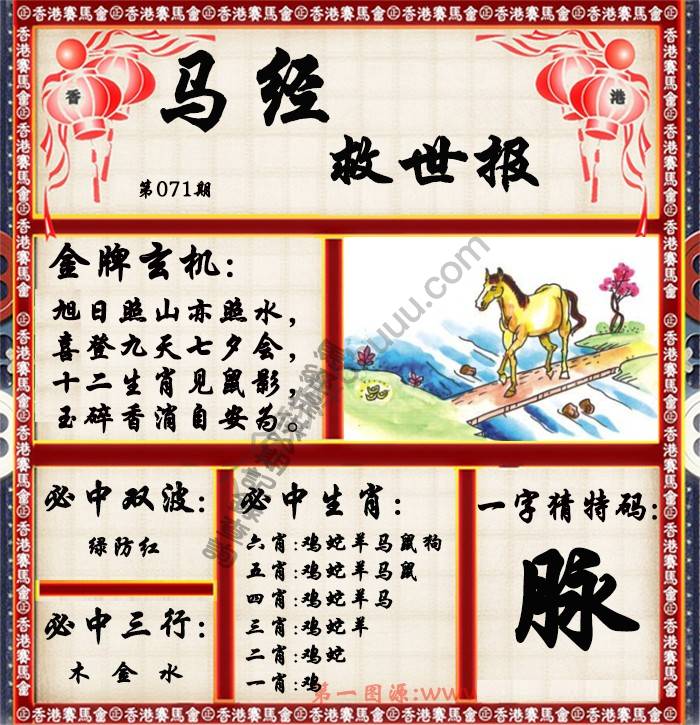 香港賽馬會
香
港
马经
救世报
第071期
金牌玄机:
旭日照山亦照水,
喜登九天七夕会,
十二生肖见鼠影,
玉碎香消自安为。
必中双波:
绿防红
必中三行:
木 金 水
必中生肖:
六肖:鸡蛇羊马鼠狗
五肖:鸡蛇羊马鼠
四肖:鸡蛇羊马
三肖:鸡蛇羊
二肖:鸡蛇
一肖:鸡
一字猜特码:
脉
第一图源:www